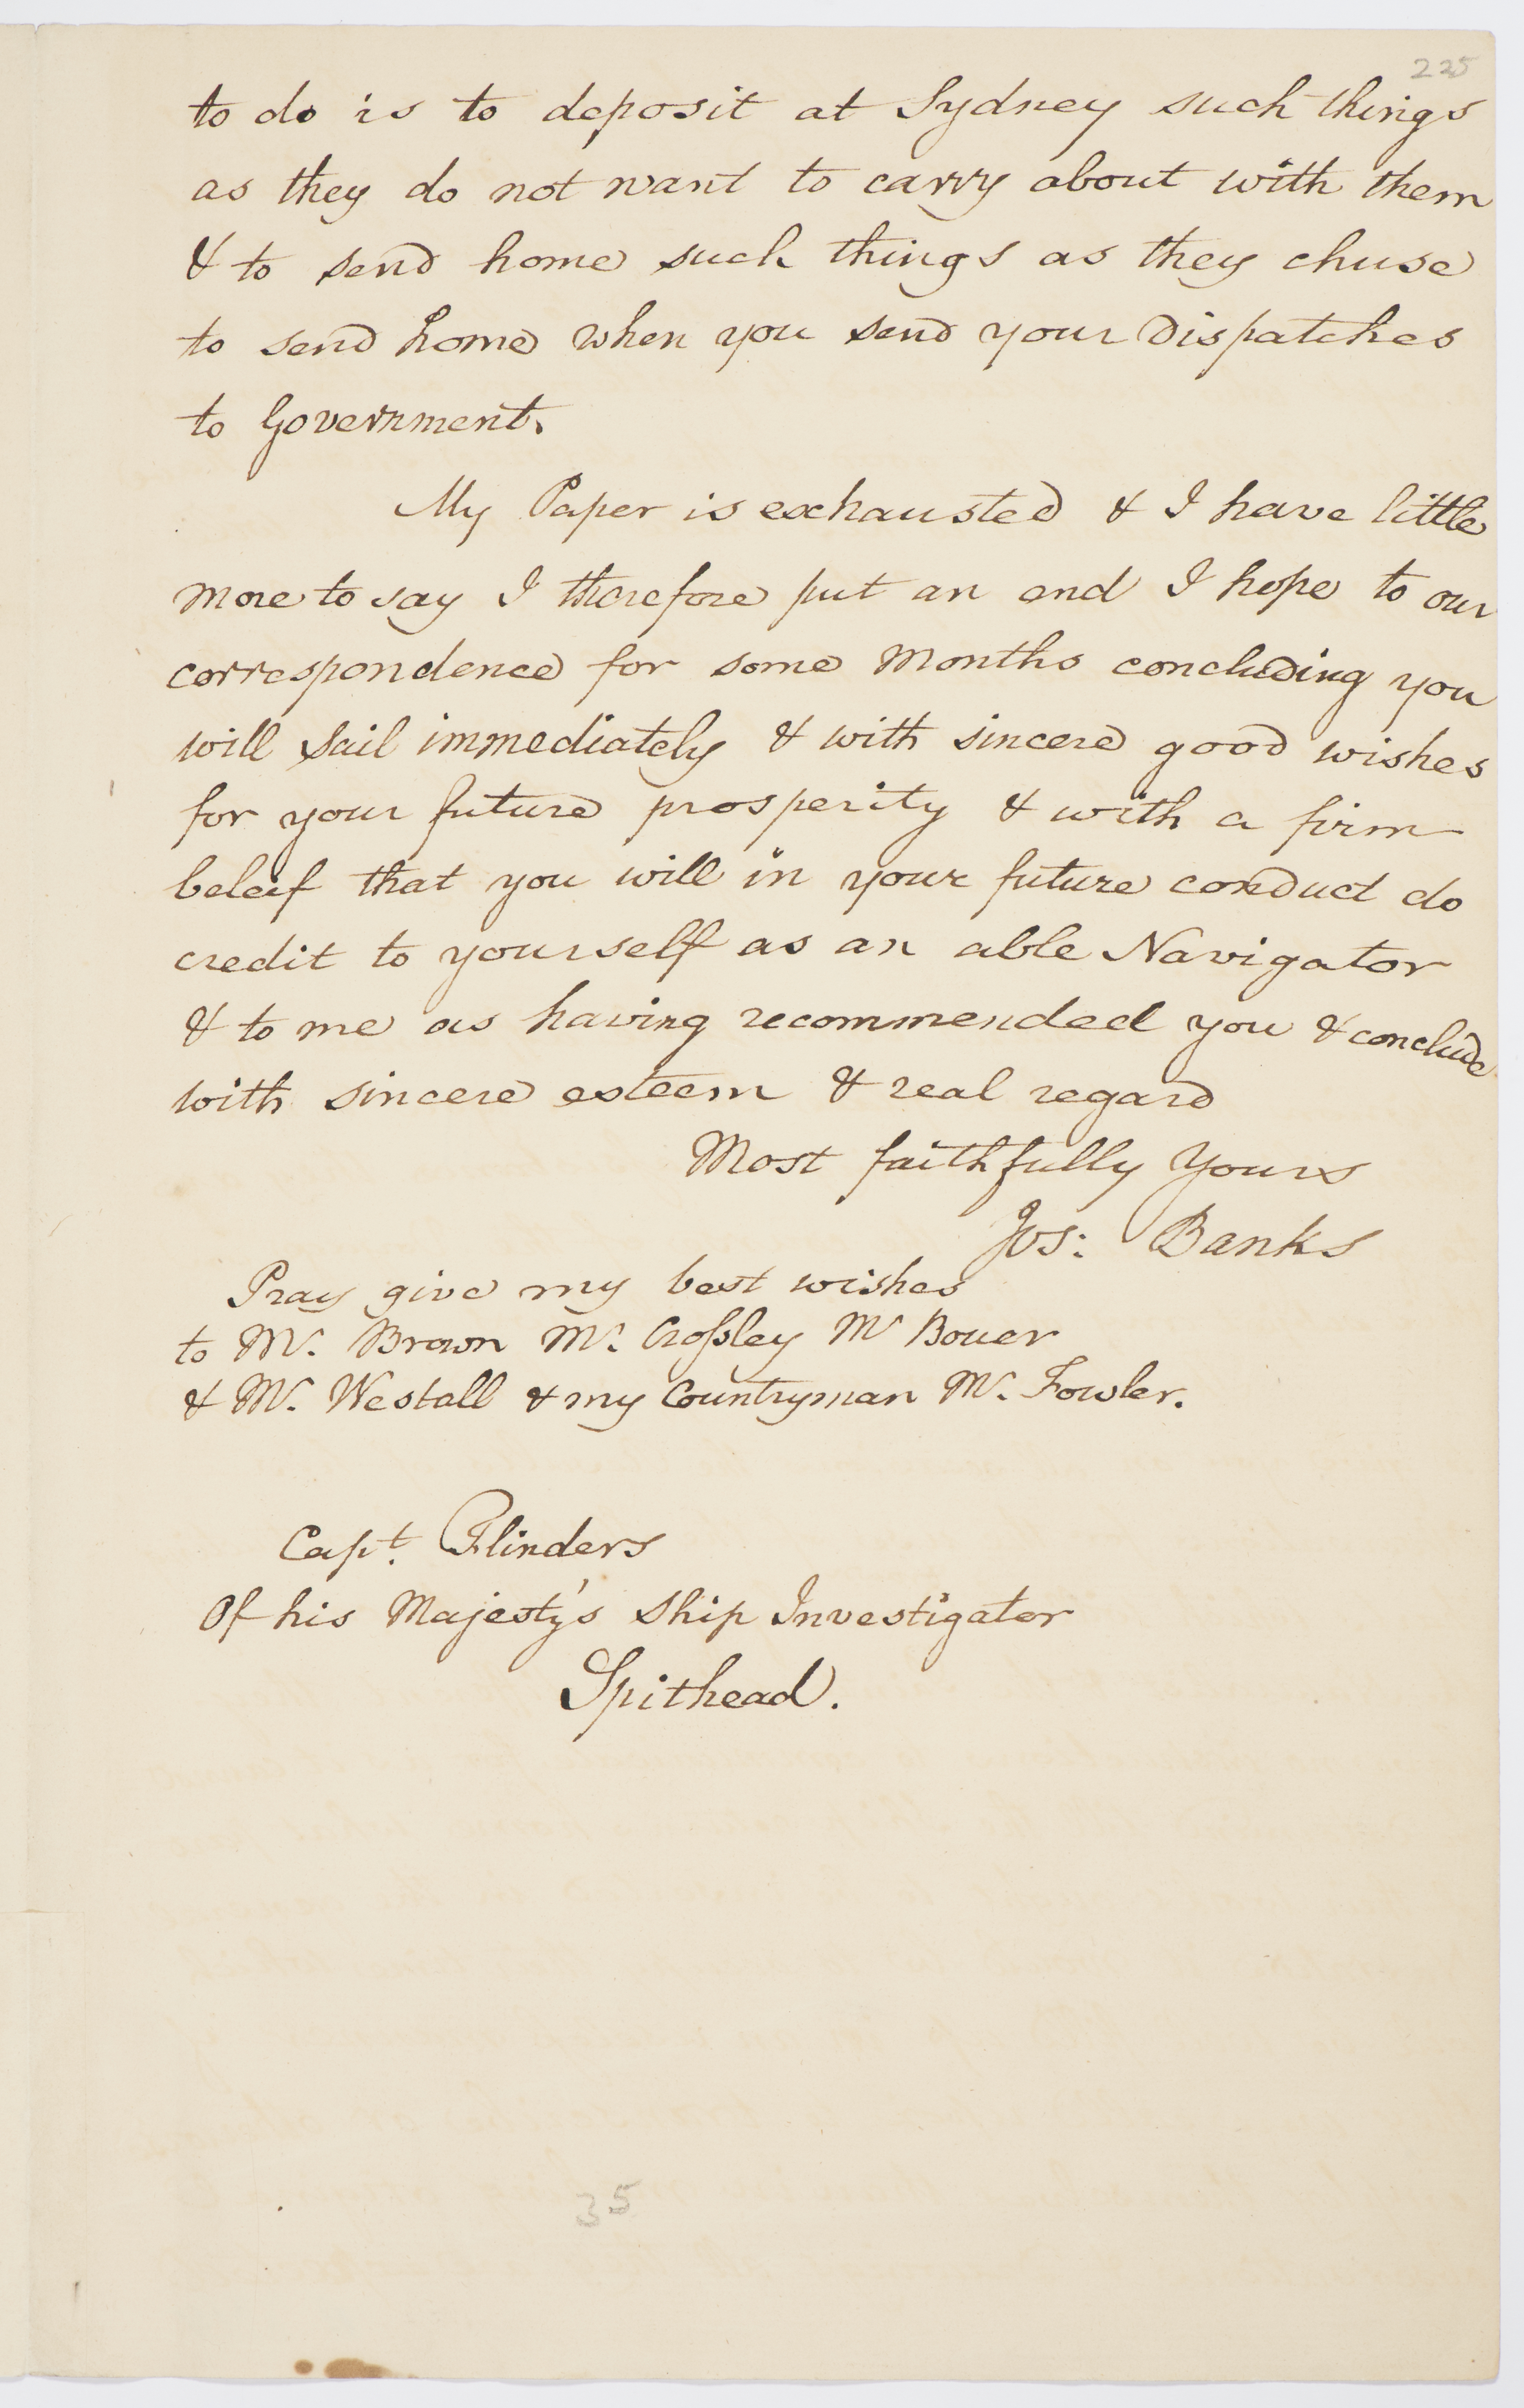 225
to do is to deposit at Sydney such things
as they do not want to carry about with them
& to send home such things as they chuse
to send home when you send your Dispatches
to Government.
My Paper is exhausted & I have little
more to say I therefore put an end I hope to our
correspondence for some Months concluding you
will sail immediately & with sincere good wishes
for your future prosperity & with a firm
beleif that you will in your future conduct do
credit to yourself as an able Navigator
& to me as having recommended you & conclude
with sincere esteem & real regard
Most faithfully Yours
Jos: Banks
Pray give my best wishes
to Mr. Brown Mr. Croſsley Mr Bouer
& Mr. Westall & my Countryman Mr. Fowler.
Capt. Flinders
Of his Majesty's Ship Investigator
Spithead.
35